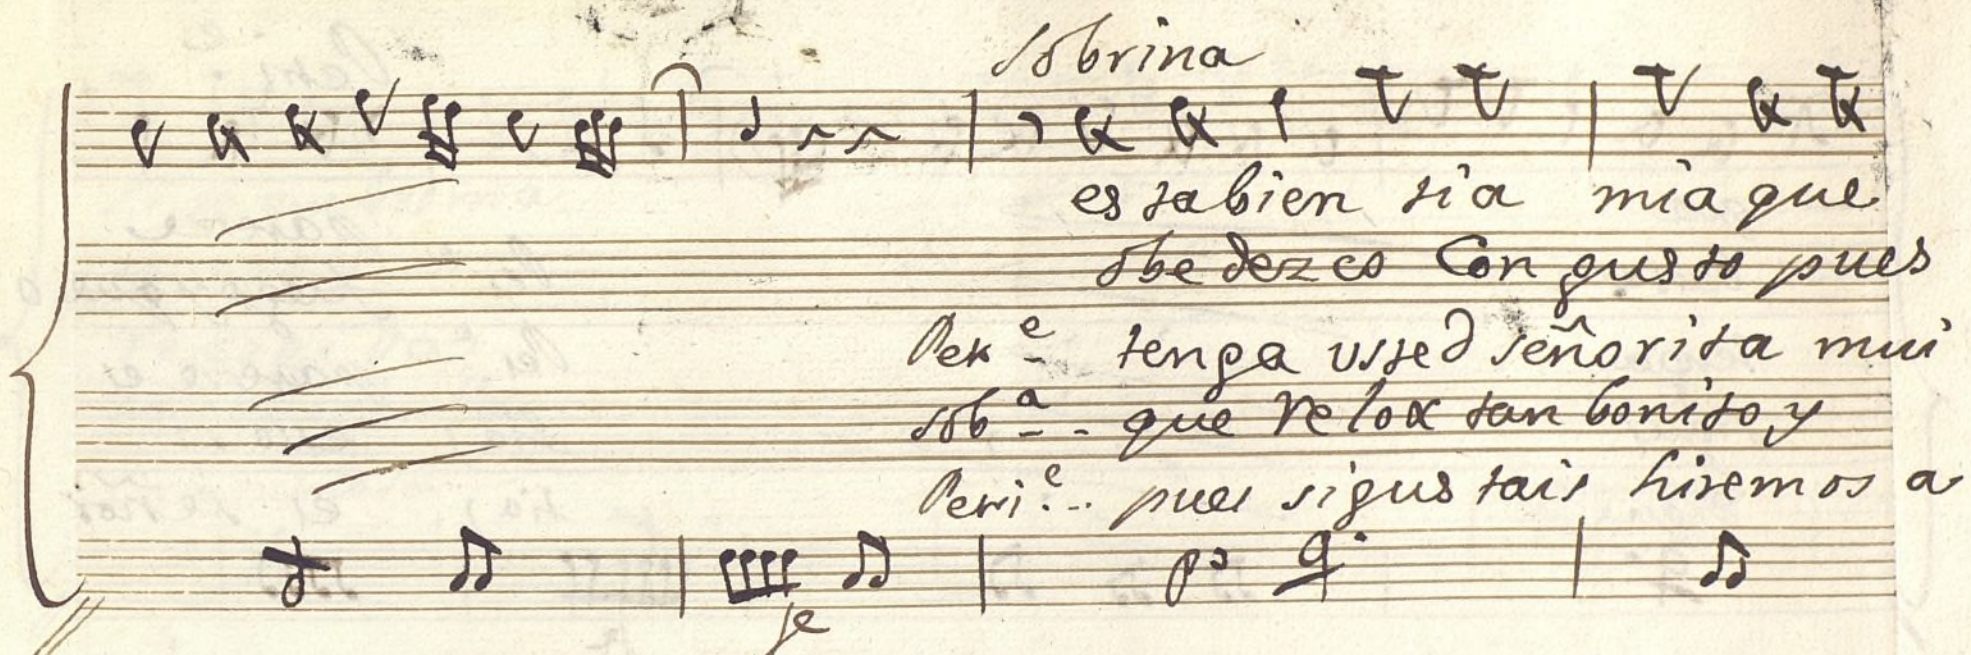 sobrina
estabien tia mia que
obedezco Con gusto pues
Per^e - tenga usted señorita mui
sob^a - - que Relox tan bonito y
Peri^e. - - pues si gustais hiremos a